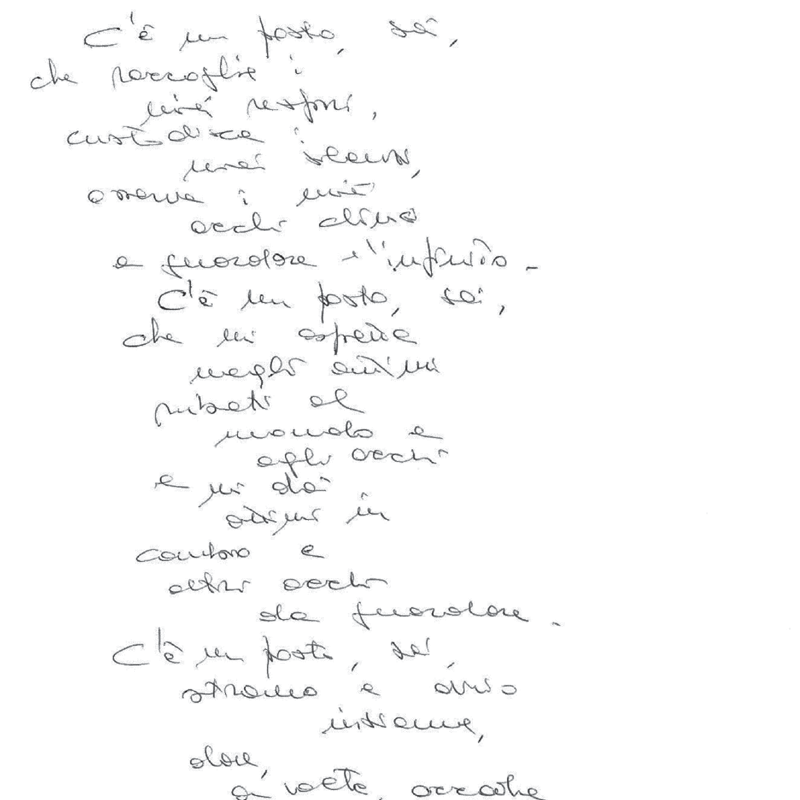 C'è un posto, sai,
che raccoglie i
miei respiri,
custodisce i
miei silenzi,
osserva i miei
occhi chini
a guardare l'infinito.
C'è un posto, sai,
che mi aspetta
negli attimi
rubati al
mondo e
agli occhi
e mi dà
attimi in
cambio e
altri occhi
da guardare.
C'è un posto, sai,
strano e
insieme,
dove,
a volte, accade